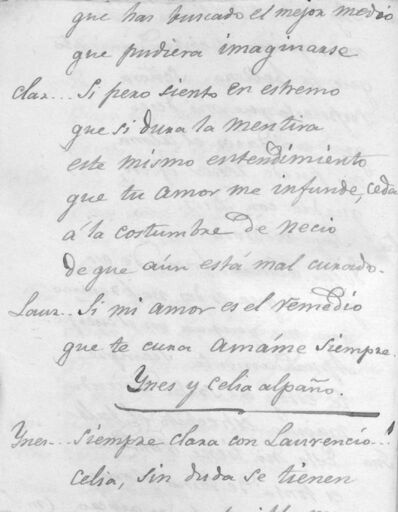 que has buscado el mejor medio
que pudiera imaginarse
Clar... Si pero siento en estremo
que si dura la mentira
este mismo entendimiento
que tu amor me infunde, ceda
á la costumbre de necio
de que aún está mal curado.
Laur... Si mi amor es el remedio
que te cura amáme siempre.
Ynes y Celia al paño.
Ynes... siempre clara con Laurencio...
Celia, sin duda se tienen